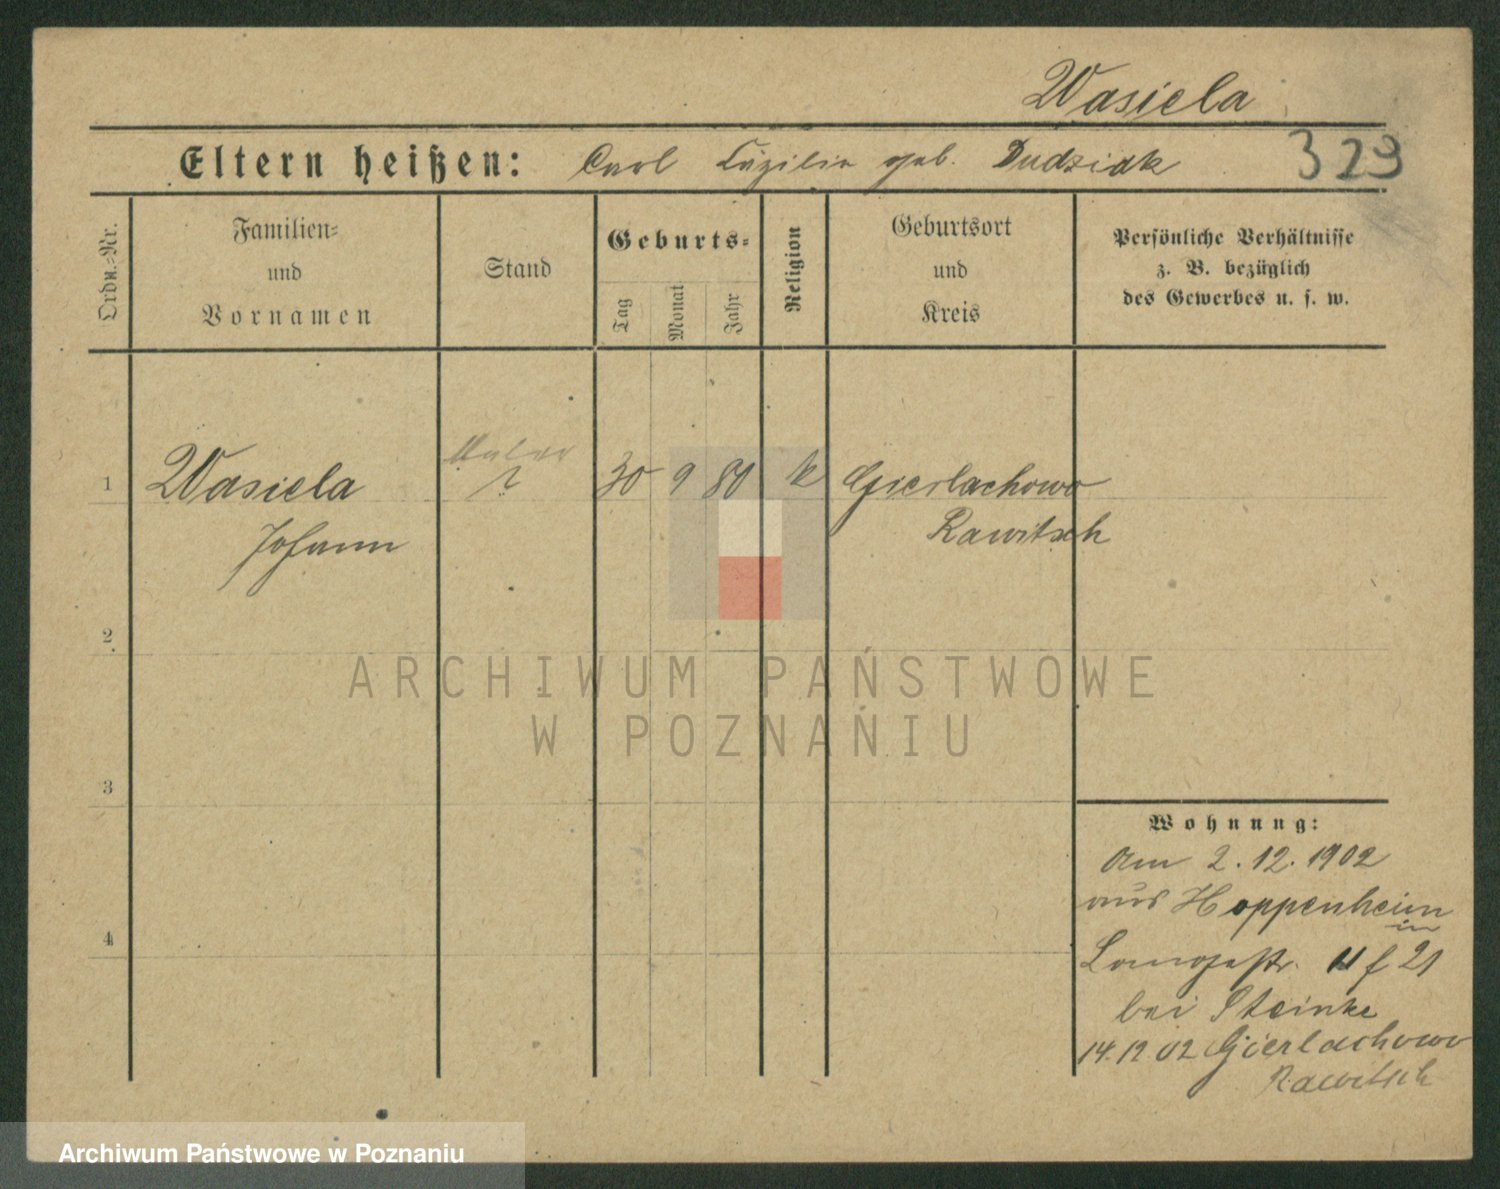 Wasiela
Eltern heißen: Carl Cäzilie geb. Dudziak
329
Ordn.-Nr.
Familien-
und
Vornamen
Stand
Geburts-
Tag
Monat
Jahr
Religion
Geburtsort
und
Kreis
Persönliche Verhältnisse
z. B. bezüglich
des Gewerbes u. s. w.
1 Wasiela ? 30 9 80 k Gierlachowo
Johann Rawitsch
2
3
4
Wohnung:
Am 2.12.1902
aus Hoppenheim
in
21
bei Steinke
14.12 02 Gierlachowo
Rawitsch
ARCHIWUM PAŃSTWOWE
W POZNANIU
Archiwum Państwowe w Poznaniu